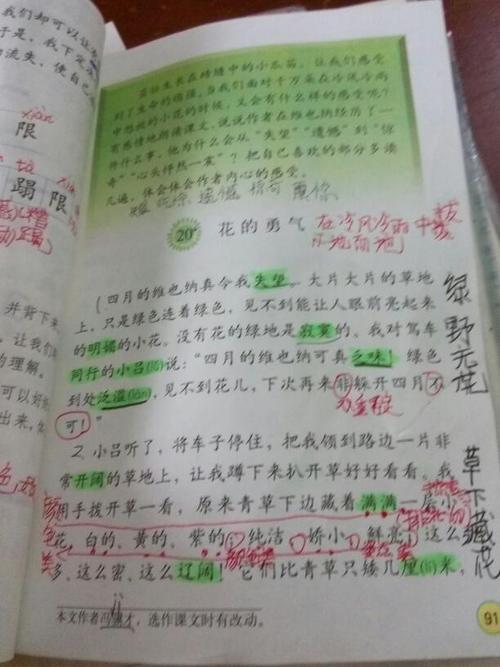 我们却可以让
于是，我下定
的流失，使自己
xiàn
限
tà
蹋 限
并背下来
让我们
的理解。
可以好
出来，
茁壮生长在砖缝中的小瓜苗，让我们感受
到了生命的顽强。当我们面对千万朵在冷风冷雨
中怒放的小花的时候，又会有什么样的感受呢？
有感情地朗读课文，说说作者在维也纳经历了一
件什么事，他为什么会从“失望”“遗憾”到“惊
奇”“心头怦然一震”？把自己喜欢的部分多读
几遍，体会体会作者内心的感受。
20 花的勇气
在冷风冷雨中
四月的维也纳真令我失望。大片大片的草地
上，只是绿色连着绿色，见不到能让人眼前亮起来
的明媚的小花。没有花的绿地是寂寞的。我对驾车
同行的小吕(lǚ)说：“四月的维也纳可真乏味！绿色
到处泛滥(làn)，见不到花儿，下次再来非躲开四月不
可！”
绿野无花
2、小吕听了，将车子停住，把我领到路边一片非
常开阔的草地上，让我蹲下来扒开草好好看看。我
用手拨开草一看，原来青草下边藏着满满一层小
花，白的、黄的、紫的；纯洁、娇小、鲜亮；这么
多、这么密、这么辽阔！它们比青草只矮几厘(lí)米，
草下藏花
本文作者冯骥才，选作课文时有改动。
91